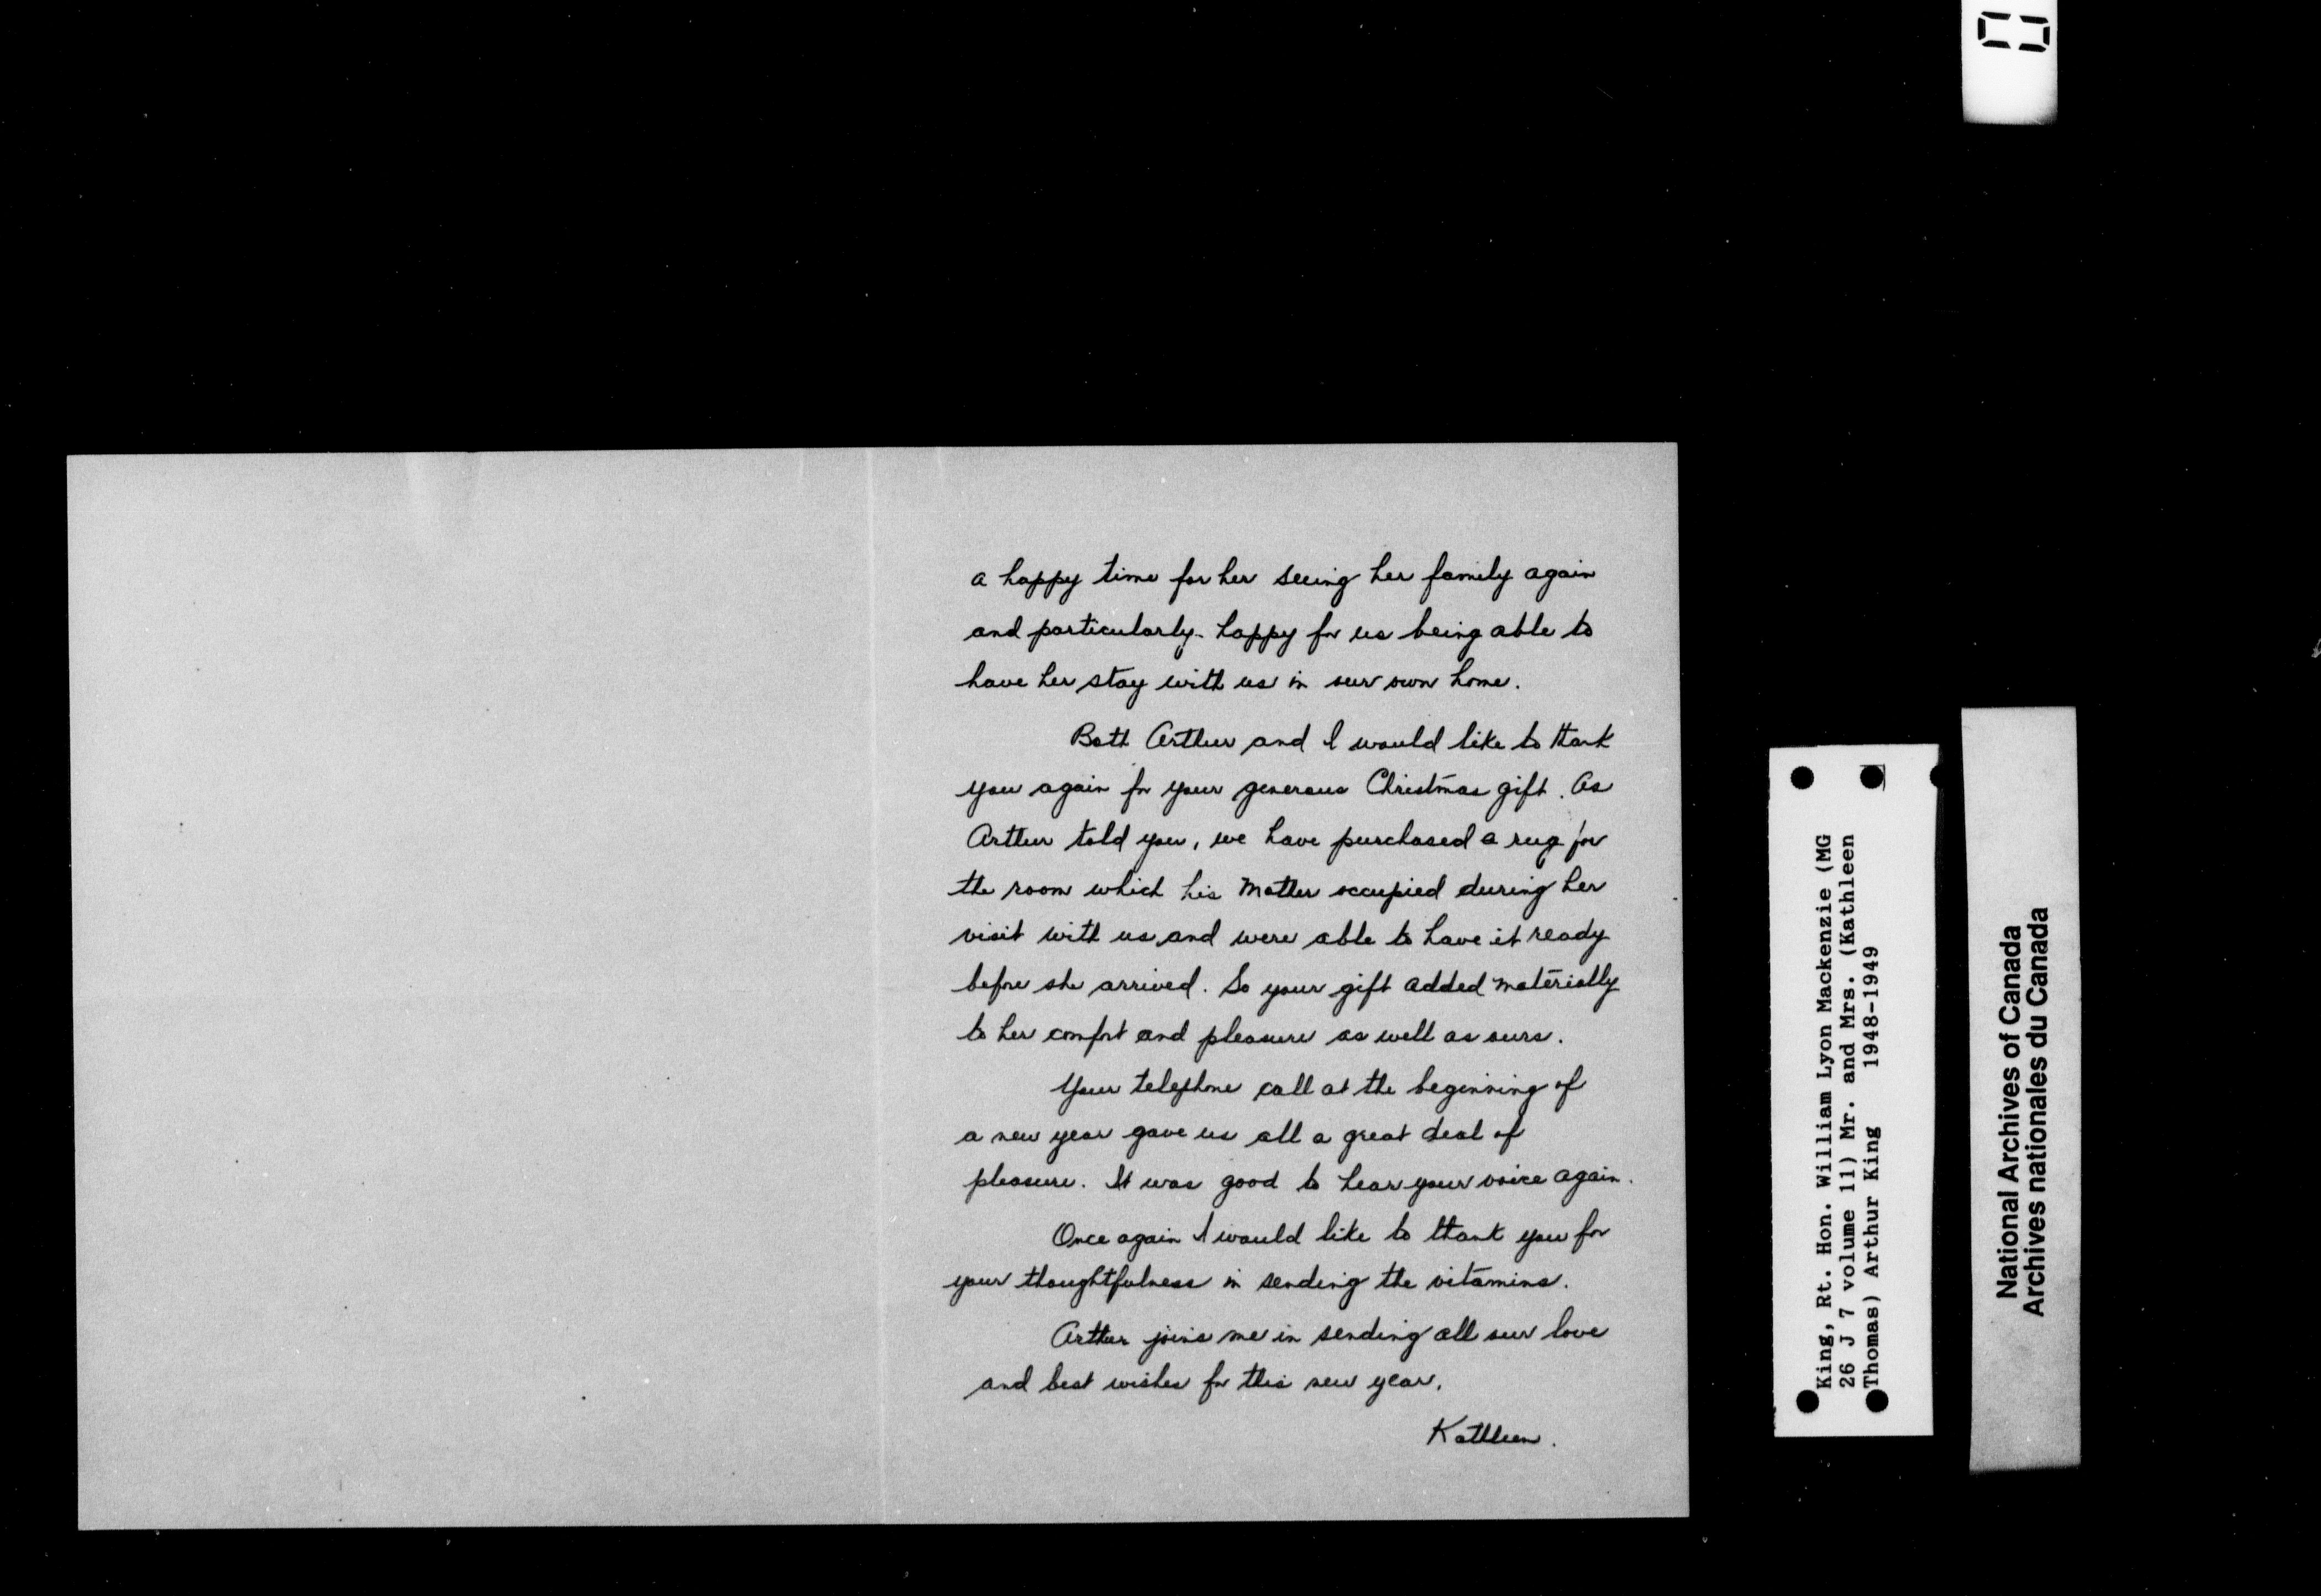 a happy time for her seeing her family again
and particularly happy for us being able to
have her stay with us in our own home.
Both Arthur and I would like to thank
you again for your generous Christmas gift. As
Arthur told you, we have purchased a rug for
the room which his Mother occupied during her
visit with us and were able to have it ready
before she arrived. So your gift added materially
to her comfort and pleasure as well as ours.
Your telephone call at the beginning of
a new year gave us all a great deal of
pleasure. It was good to hear your voice again.
Once again I would like to thank you for
your thoughtfulness in sending the vitamins.
Arthur joins me in sending all our love
and best wishes for this new year.
Kathleen.
King, Rt. Hon. William Lyon Mackenzie (MG
26 J 7 volume 11) Mr. and Mrs. (Kathleen
Thomas) Arthur King 1948-1949
National Archives of Canada
Archives nationales du Canada